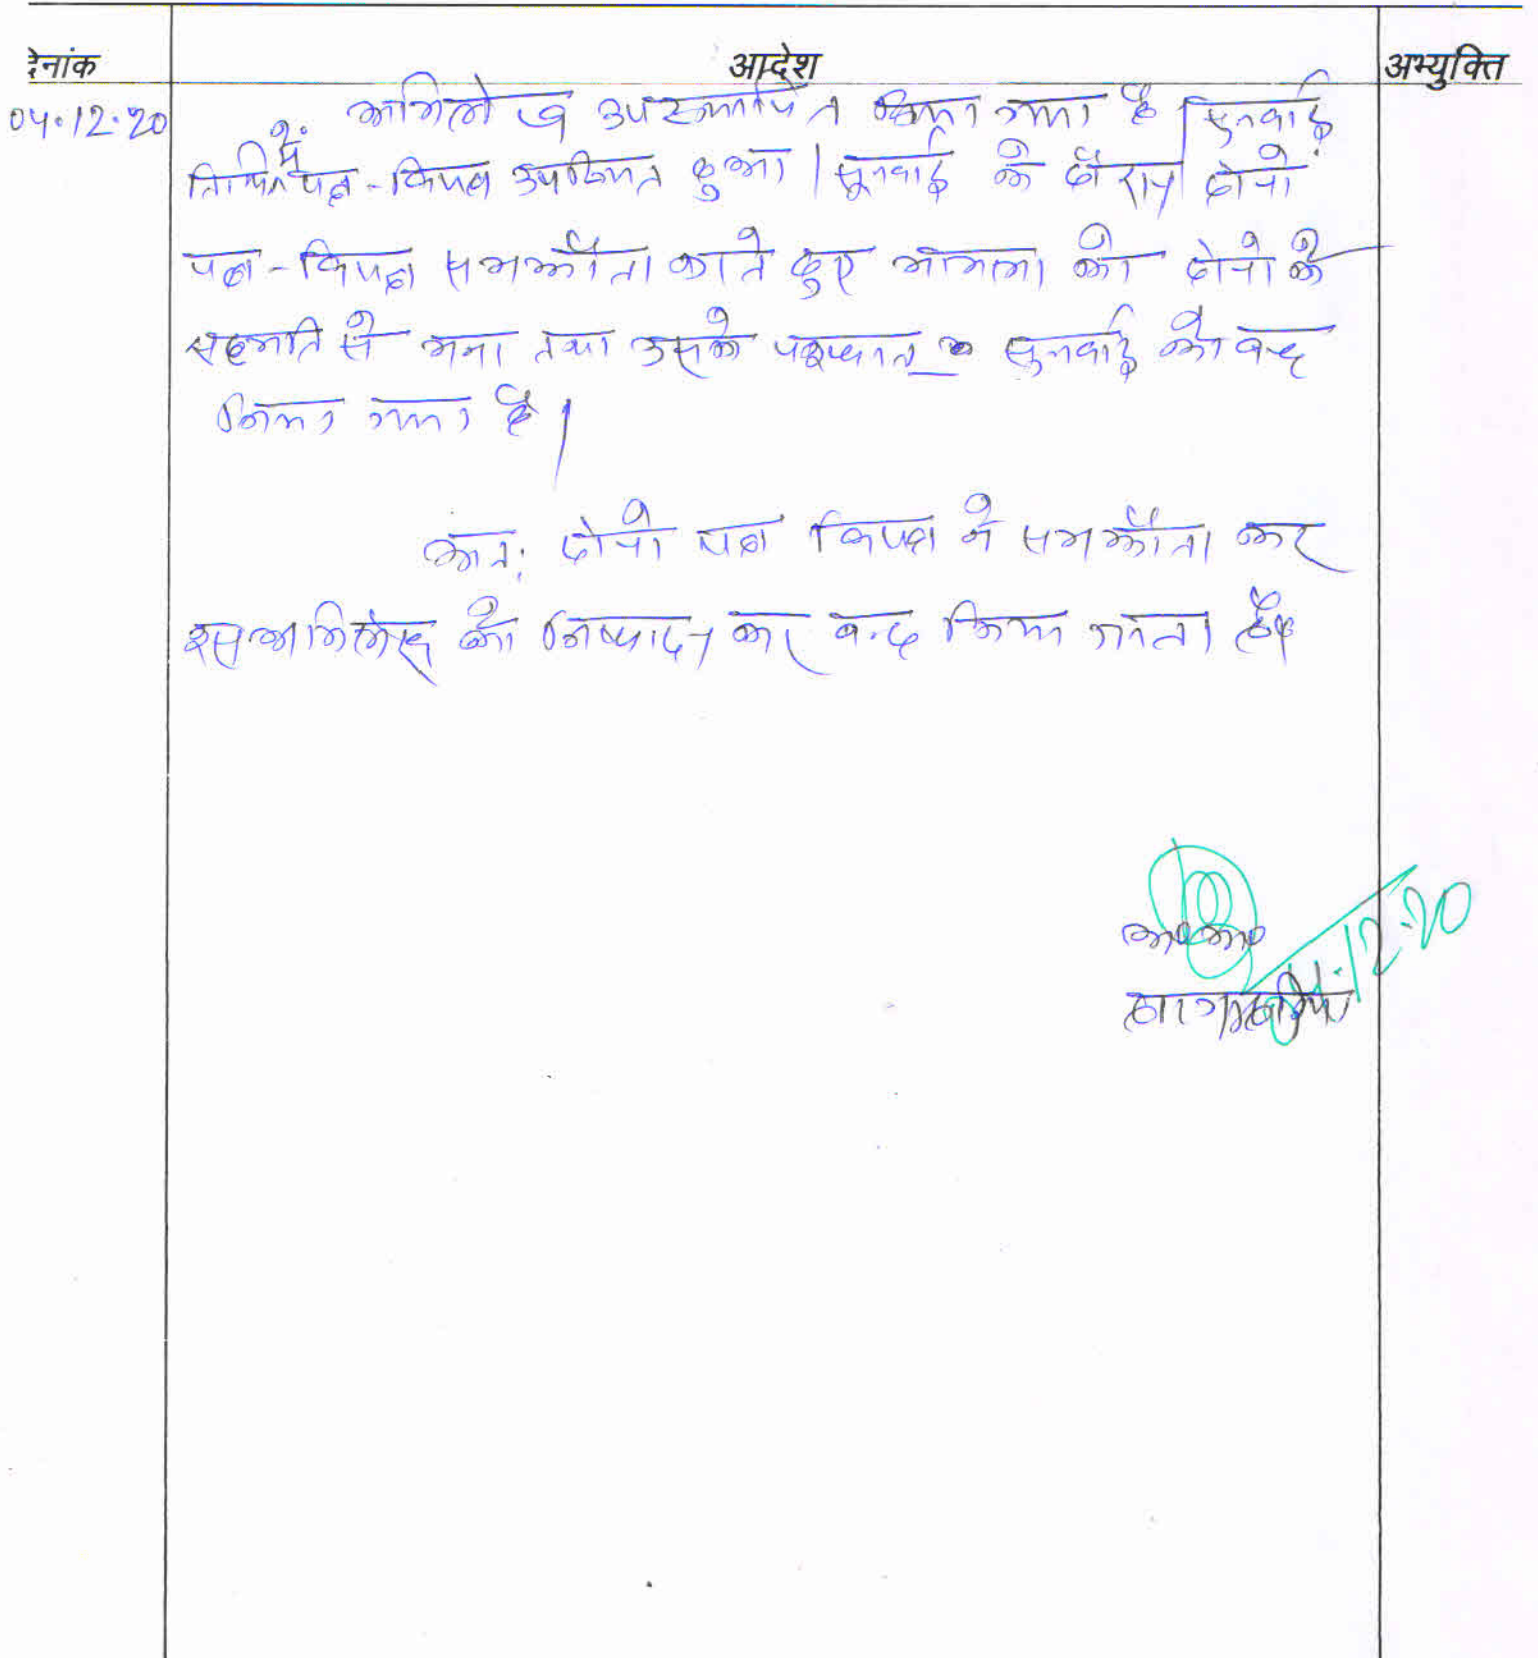 देनांक आदेश अभ्युक्ति
04.12.20 अभिलेख उपस्थापित किया गया है। सुनवाई
तिथि में पक्ष-विपक्ष उपस्थित हुआ। सुनवाई के दौरान दोनों
पक्ष-विपक्ष समझौता करते हुए मामला को दोनो के
सहमति से तथा उसके पश्चात् सुनवाई को बन्द
किया गया है।
अतः दोनो पक्ष विपक्ष ने समझौता कर
इस अभिलेख को निष्पादन कर बन्द किया जाता है।
12.20